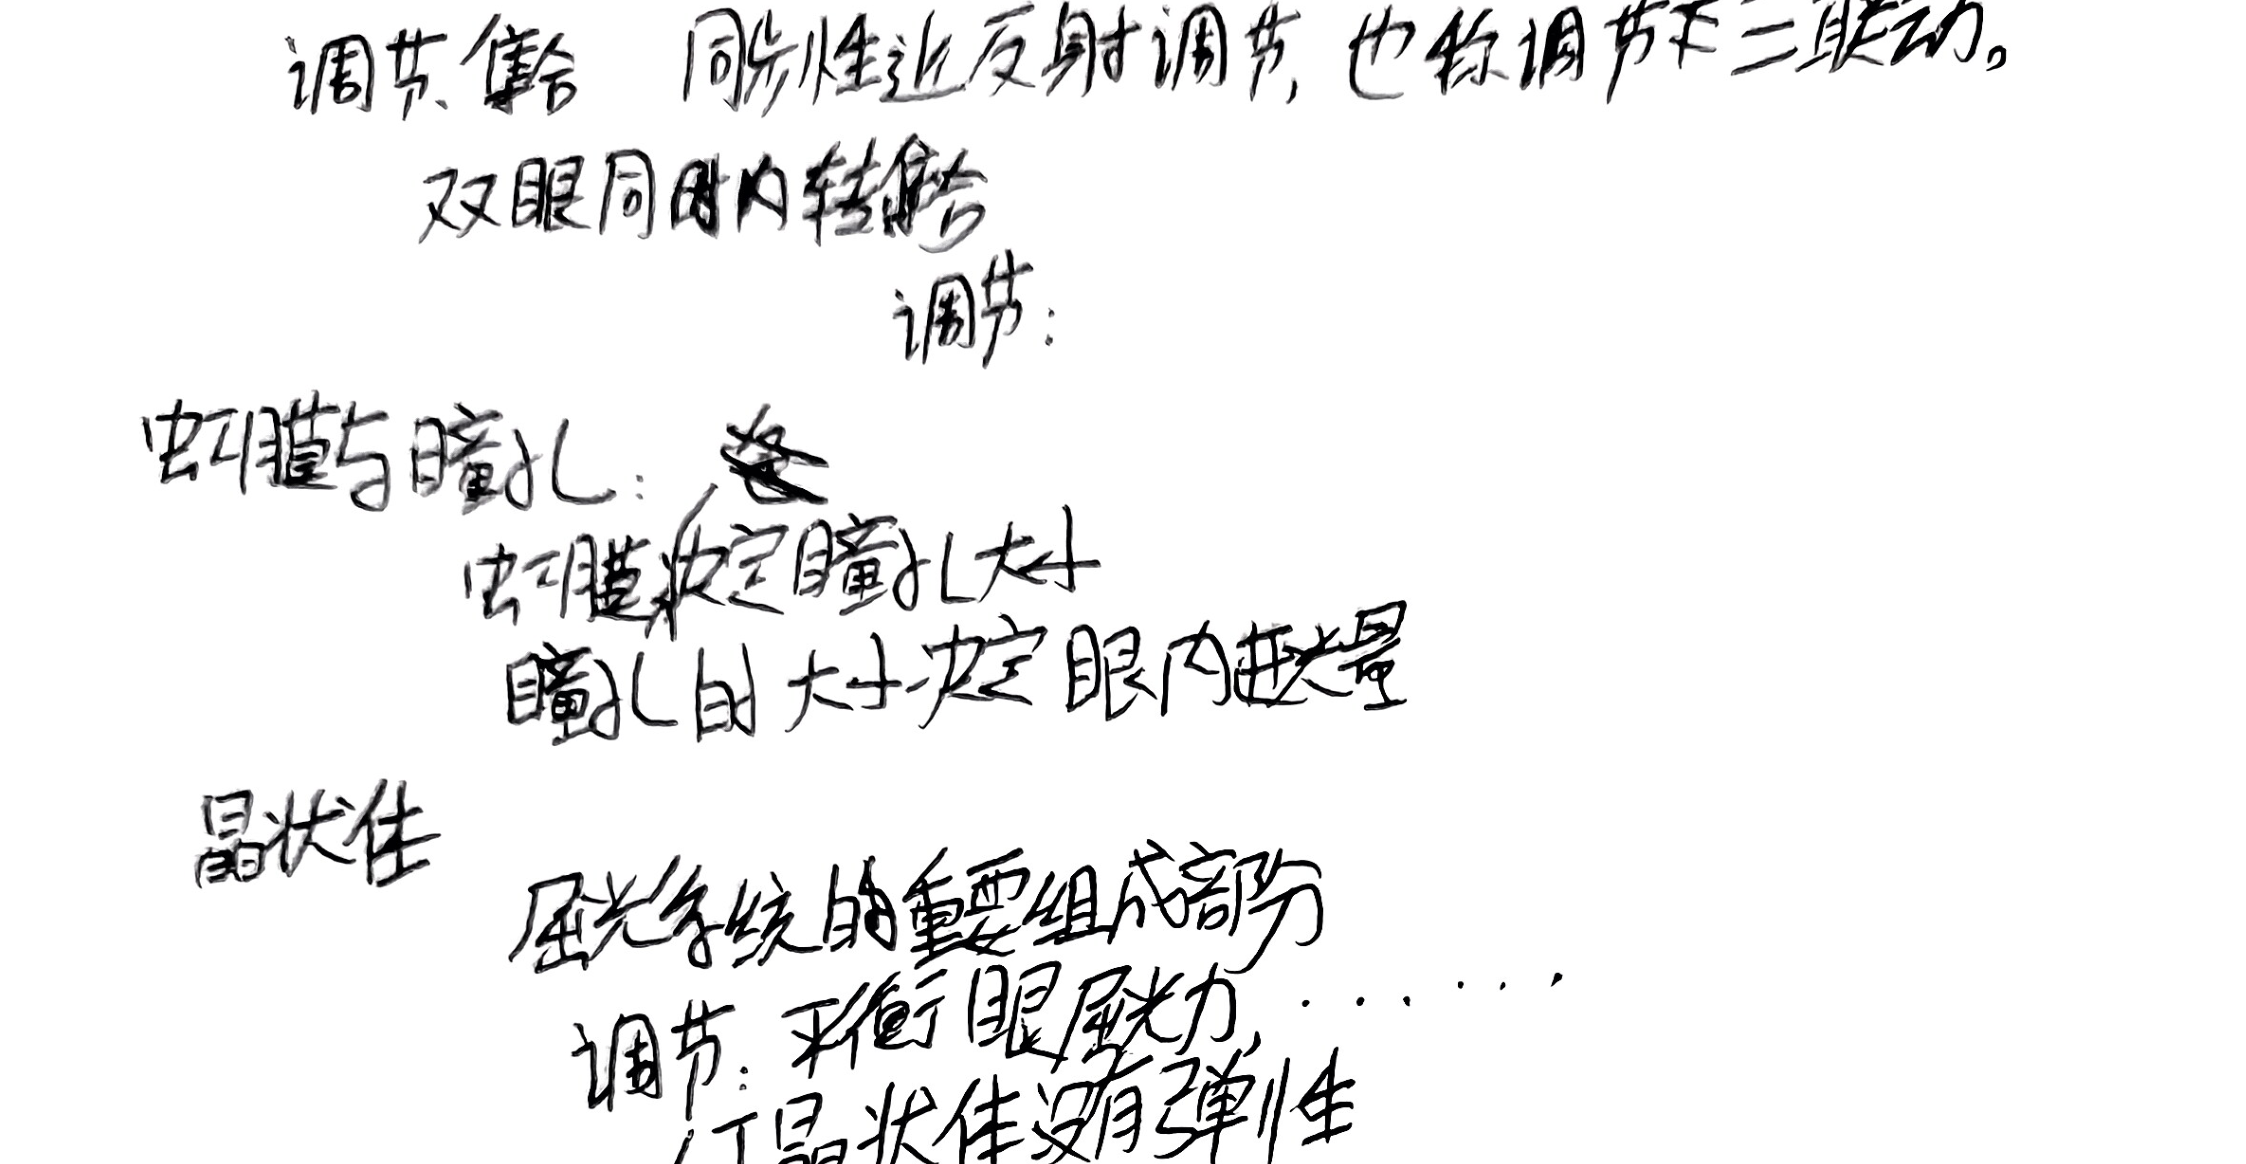 调节、集合 同步性近反射调节, 也称调节下三联动。
双眼同时内转集合
调节:
虹膜与瞳孔:
虹膜决定瞳孔大小
瞳孔的大小决定眼内进光量
晶状体
屈光系统的重要组成部分
调节: 平衡眼屈光力, ......
晶状体没有弹性